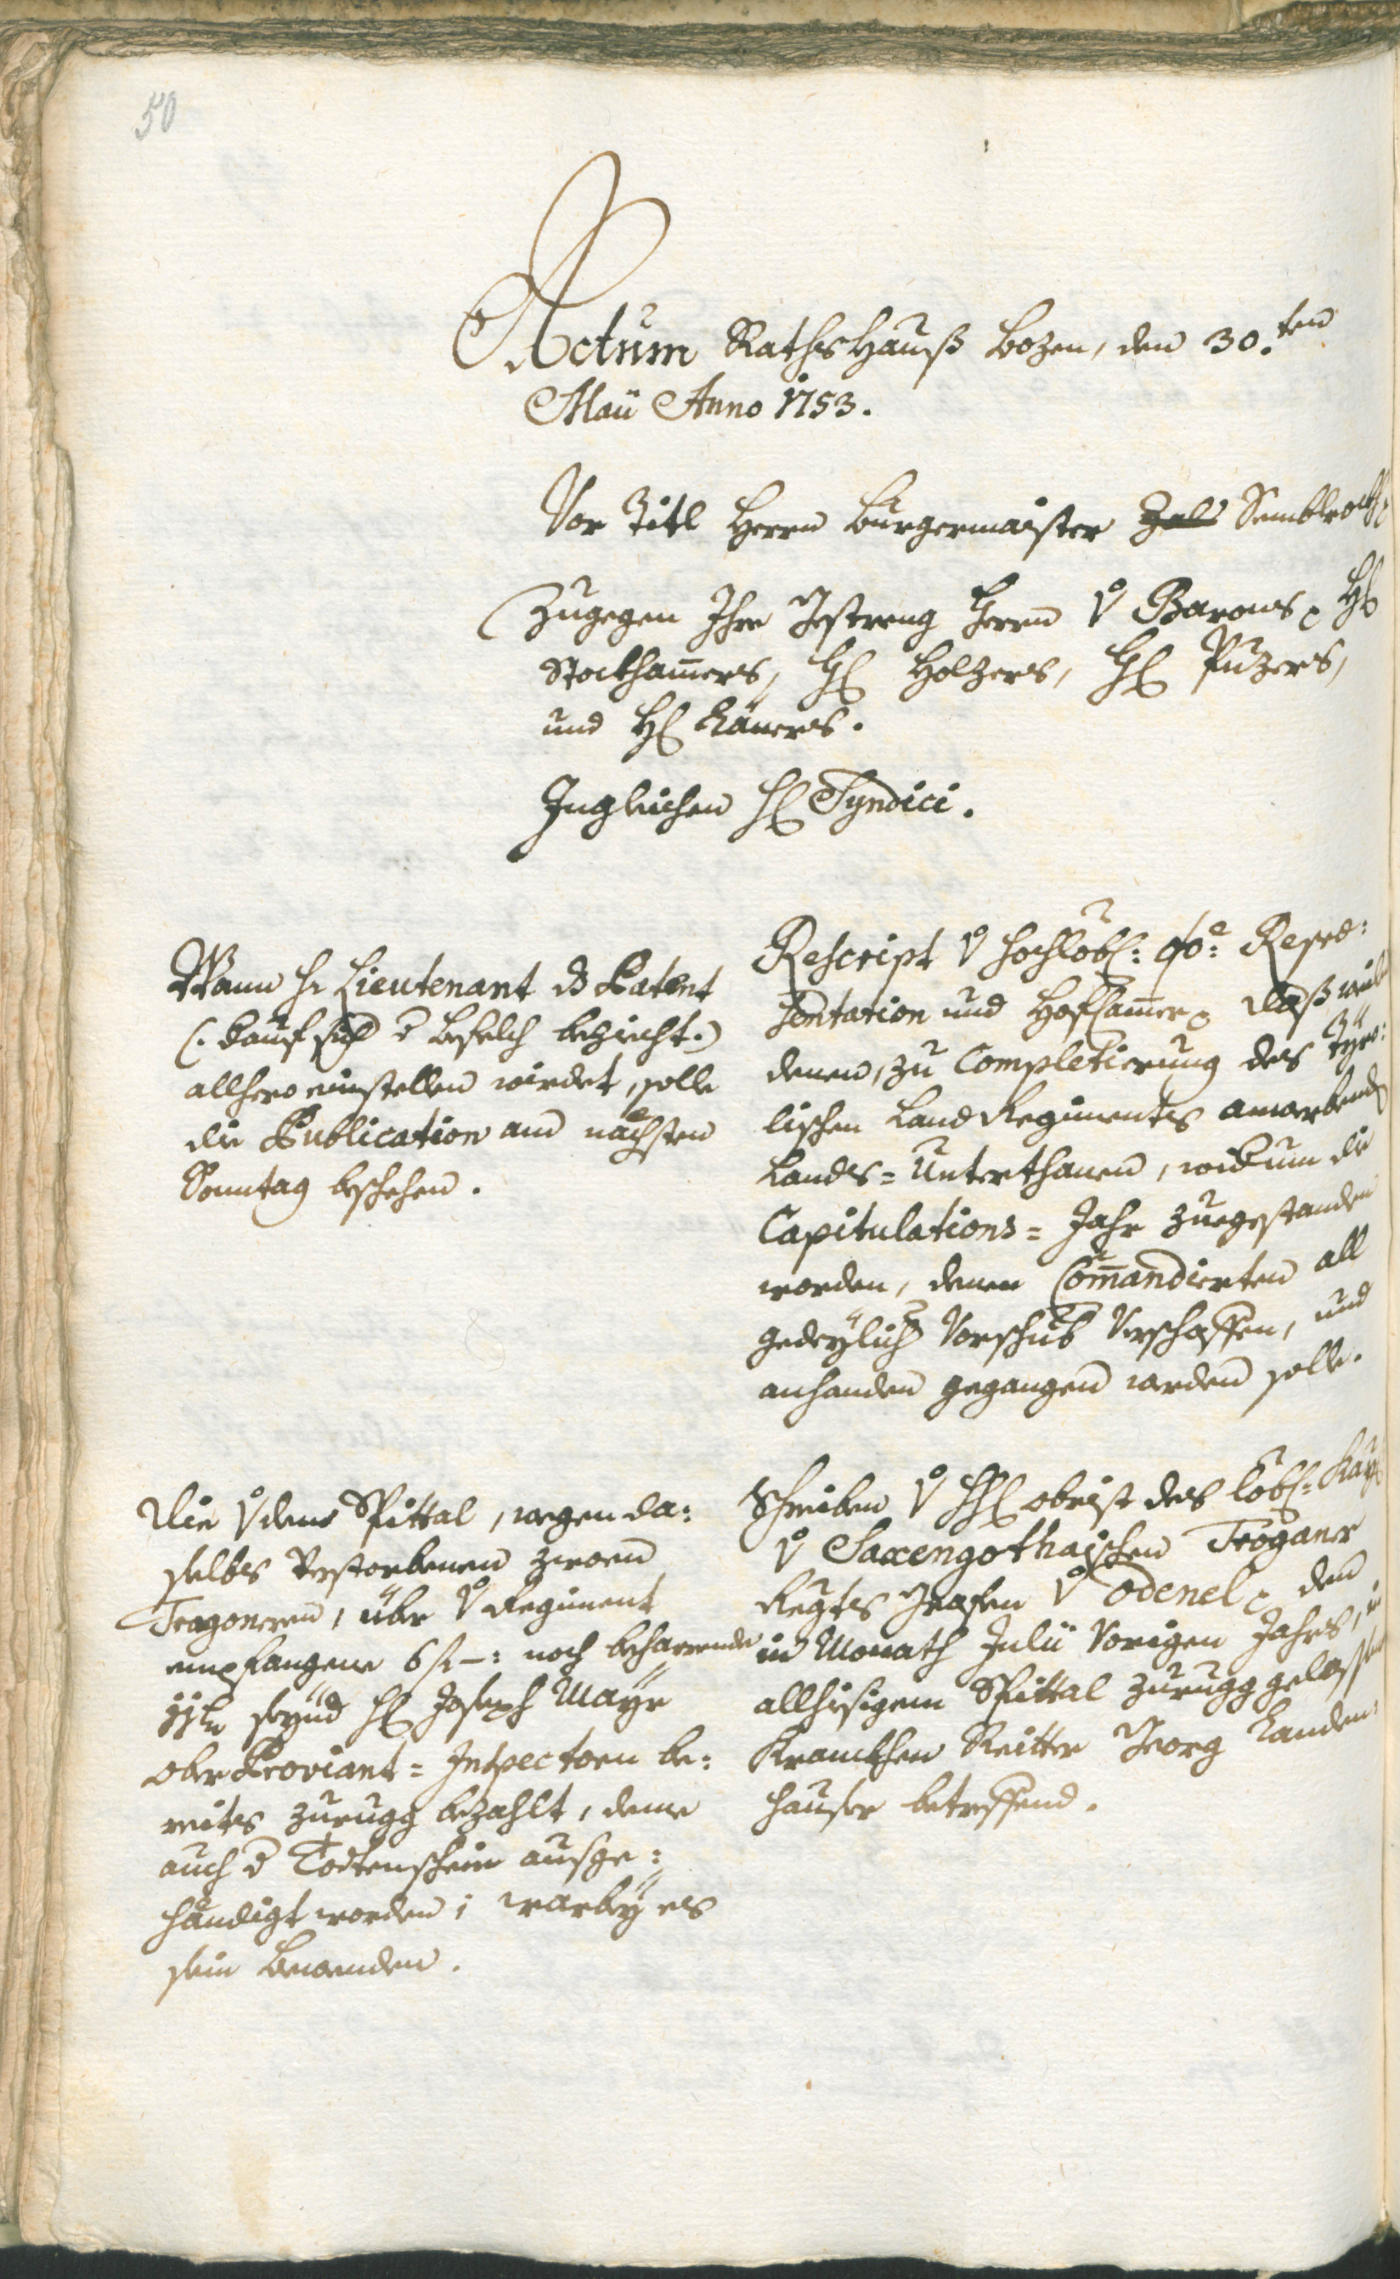 50
Actum RathsHauß Bozen, den 30.ten
Maii Anno 1753.
Vor Titl Herrn Burgermaister
Zugegen Ihre Gestreng Herrn v Barons, H
Stockhamers, H Holzers, H Puzers,
und H
Ingleichen H Syndici.
Wann H Lieutenant d Patent
(: darauf sich d Befelch beziecht :)
allhero einstellen wirdet, solle
die Publication am nächsten
Sonntag beschehen.
Rescript v hochlobl: Repræ:
sentation und HofCamer daß
denen, zu Completierung des Tyro:
lischen Land Regiments anwerbend
Lands=Unterthanen, widerum die
Capitulations=Jahr zuegestanden
worden, denen Commandierten all
gedeylich Vorschub verschaffen, und
anhanden gegangen werden solle.
Die v dem Spittal, wegen da:
selbs verstorbenen zween
Tragonern, über v Regiment
empfangene 6 f —: noch beharrende
seynd H Joseph Mayr
Ober Proviant=Inspectorn be:
reits zurugg bezahlt, deme
auch d Todtenschein ausge:
händigt worden; warbey es
sein Bewenden.
Schreiben v H Obrist des lobl: Kay
v Saxengothaischen Tragoner
Regts Grafen v Odenel, den
in Monath Julii vorigen Jahrs, in
allhisigem Spittal zurugg gelassen
Krancken Reitter Georg Landen:
hauser betreffend.